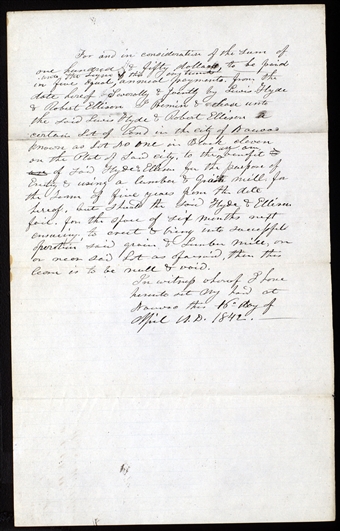 For and in consideration of the Sum of
one hundred & fifty dollars to be paid
in five equal annual payments, from the
date hereof Severally & Jointly by Lewis Hyde
& Robert Ellison I Remise & lease unto
the Said Lewis Hyde & Robert Ellison a
certain Lot of Land in the city of Nauvoo
known as Lot No One in Block eleven
on the Plat of Said city, to the use and benefit
of Said Hyde & Ellison for the purpose of
& using a lumber & Grist Mill, for
the term of five years from the date
hereof, but Should the Said Hyde & Ellison
fail, for the Space of Six months next
ensuing, to erect & bring into successful
operation said grain & Lumber Mill, on
or near said Lot as aforesaid, then this
lease is to be null & void.
In witness whereof I have
hereunto set my hand at
Nauvoo this day of
April A.D. 1842.